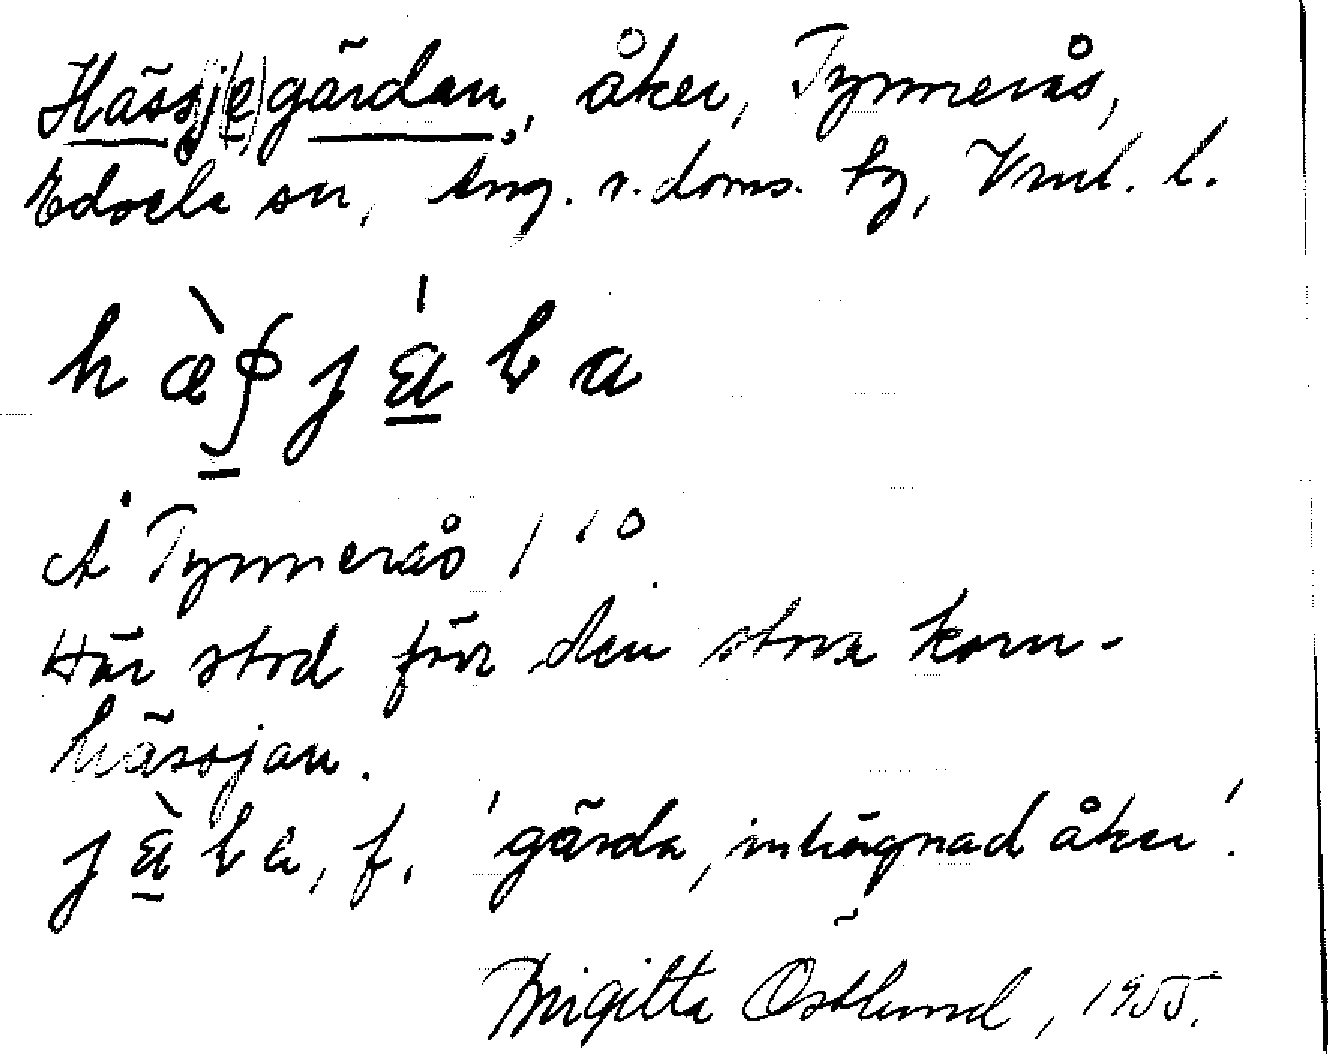 Hässj(e)gärdan, åker, Tynnerås,
Edsele sn, Ång. v. doms. fg, Vnl. l.
Å Tynnerås 1¹⁰
Här stod förr den stora korn-
hässjan.
f. 'gärda, inhägnad åker'.
Birgitta Östlund, 1955.